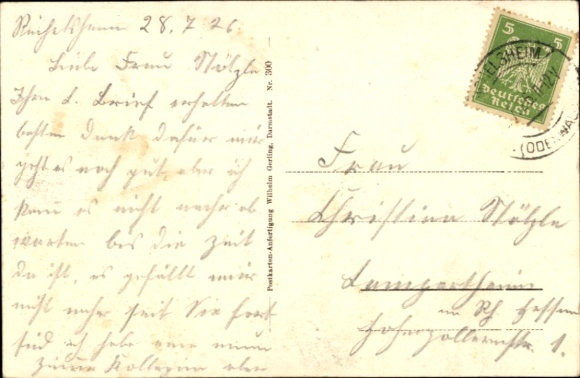 Reichelsheim 28.7.26
Liebe Frau Stötzle
Ihren l. Brief erhalten
besten Dank dafür mir
geht es noch gut, aber ich
kann es nicht mehr ab
warten bis die Zeit
da ist, es gefällt mir
nicht mehr seit Sie fort
sind ich habe eine neue
Zimmer Kollegin aber
Postkarten-Anfertigung Wilhelm Gerling, Darmstadt. Nr. 300
5 5
Deutsches
Reich
ELSHEIM
(ODENWAL
Frau
Christina Stötzle
Lampertheim
Hessen
Hohenzollernstr. 1.